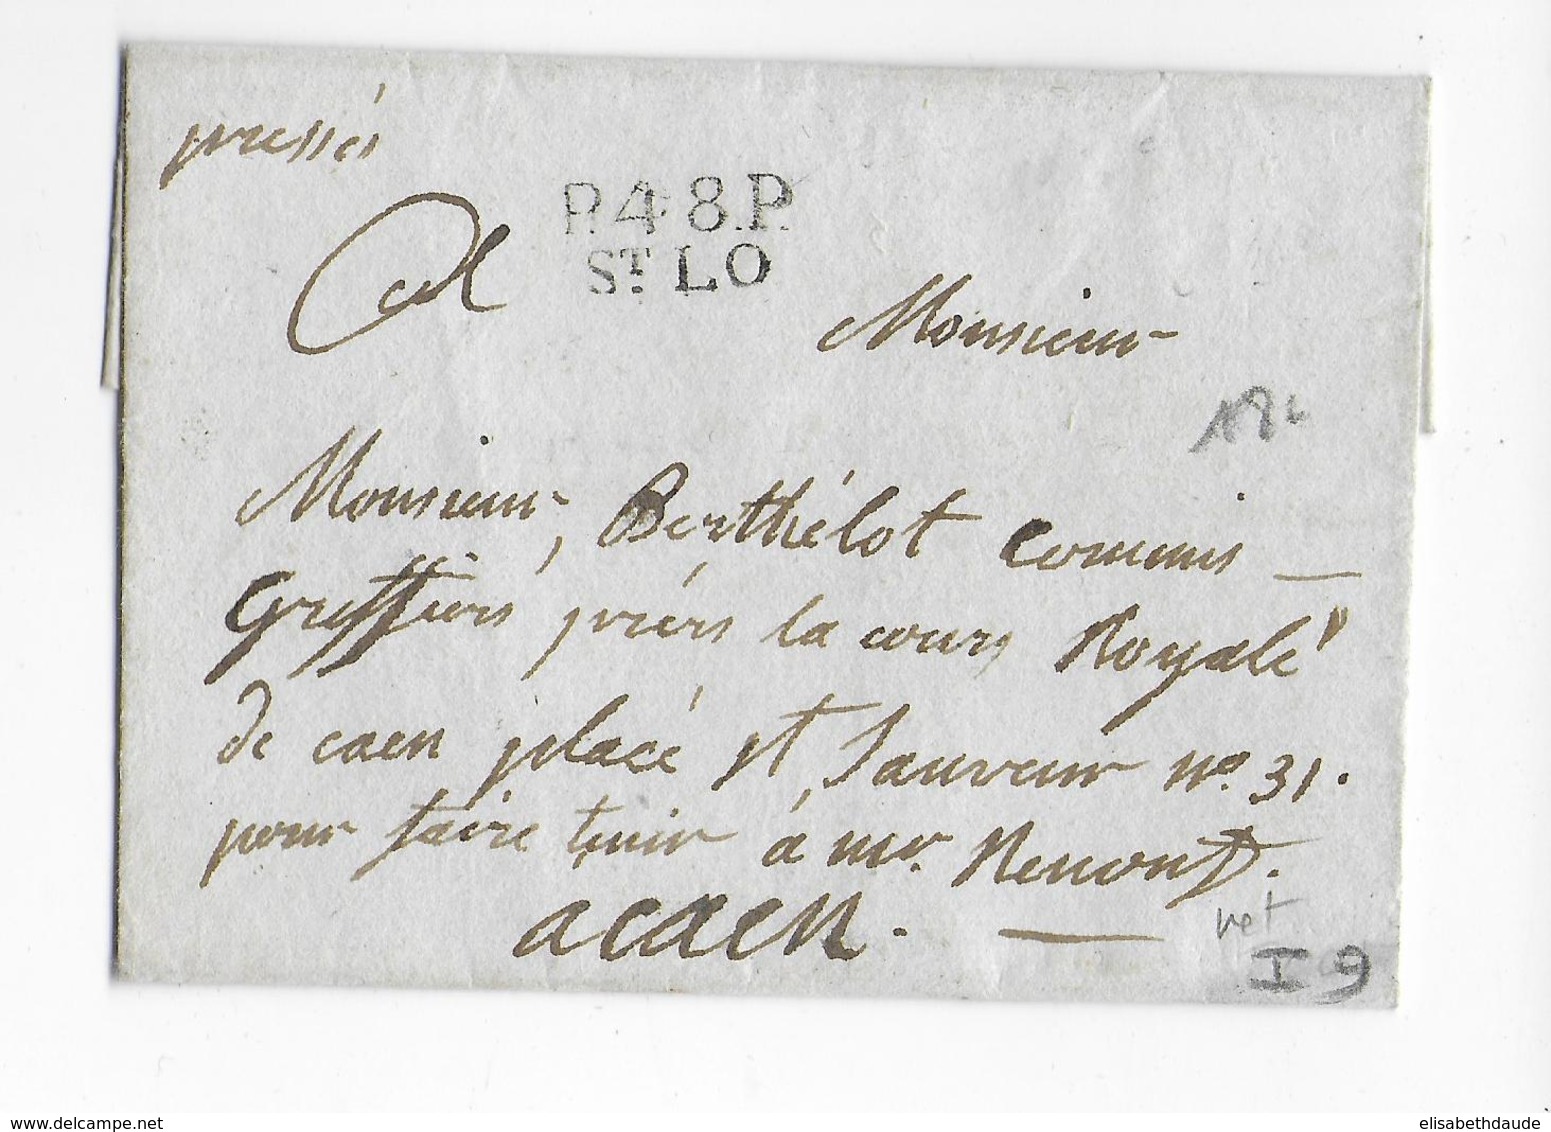 pressés
P.48.P.
ST. LO
Monsieur
Monsieur, Berthélot Commis
Greffiers prèrs la cours Royale"
de caen placé st Sauveur no. 31.
pour faire tenir à mr. Remont.
a caen.
net
I 9
elisabethdaude